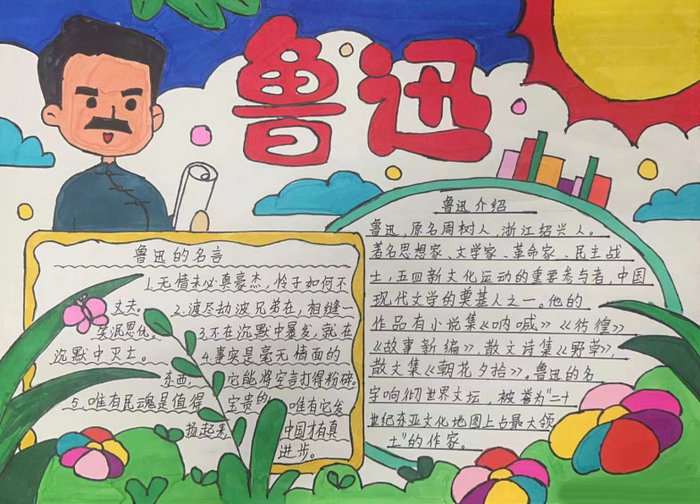 鲁迅
鲁迅的名言
1.无情未必真豪杰,怜子如何不
丈夫。2.渡尽劫波兄弟在,相逢一
笑泯恩仇。3.不在沉默中爆发,就在
沉默中灭亡。4.事实是毫无情面的
东西,它能将空言打得粉碎。
5.唯有民魂是值得宝贵的,唯有它发
扬起来,中国才有真
进步。
鲁迅介绍
鲁迅,原名周树人,浙江绍兴人。
著名思想家、文学家、革命家、民主战
士,五四新文化运动的重要参与者,中国
现代文学的奠基人之一。他的
作品有小说集《呐喊》《彷徨》
《故事新编》,散文诗集《野草》,
散文集《朝花夕拾》。鲁迅的名
字响彻世界文坛,被誉为“二十
世纪东亚文化地图上占最大领
土”的作家。